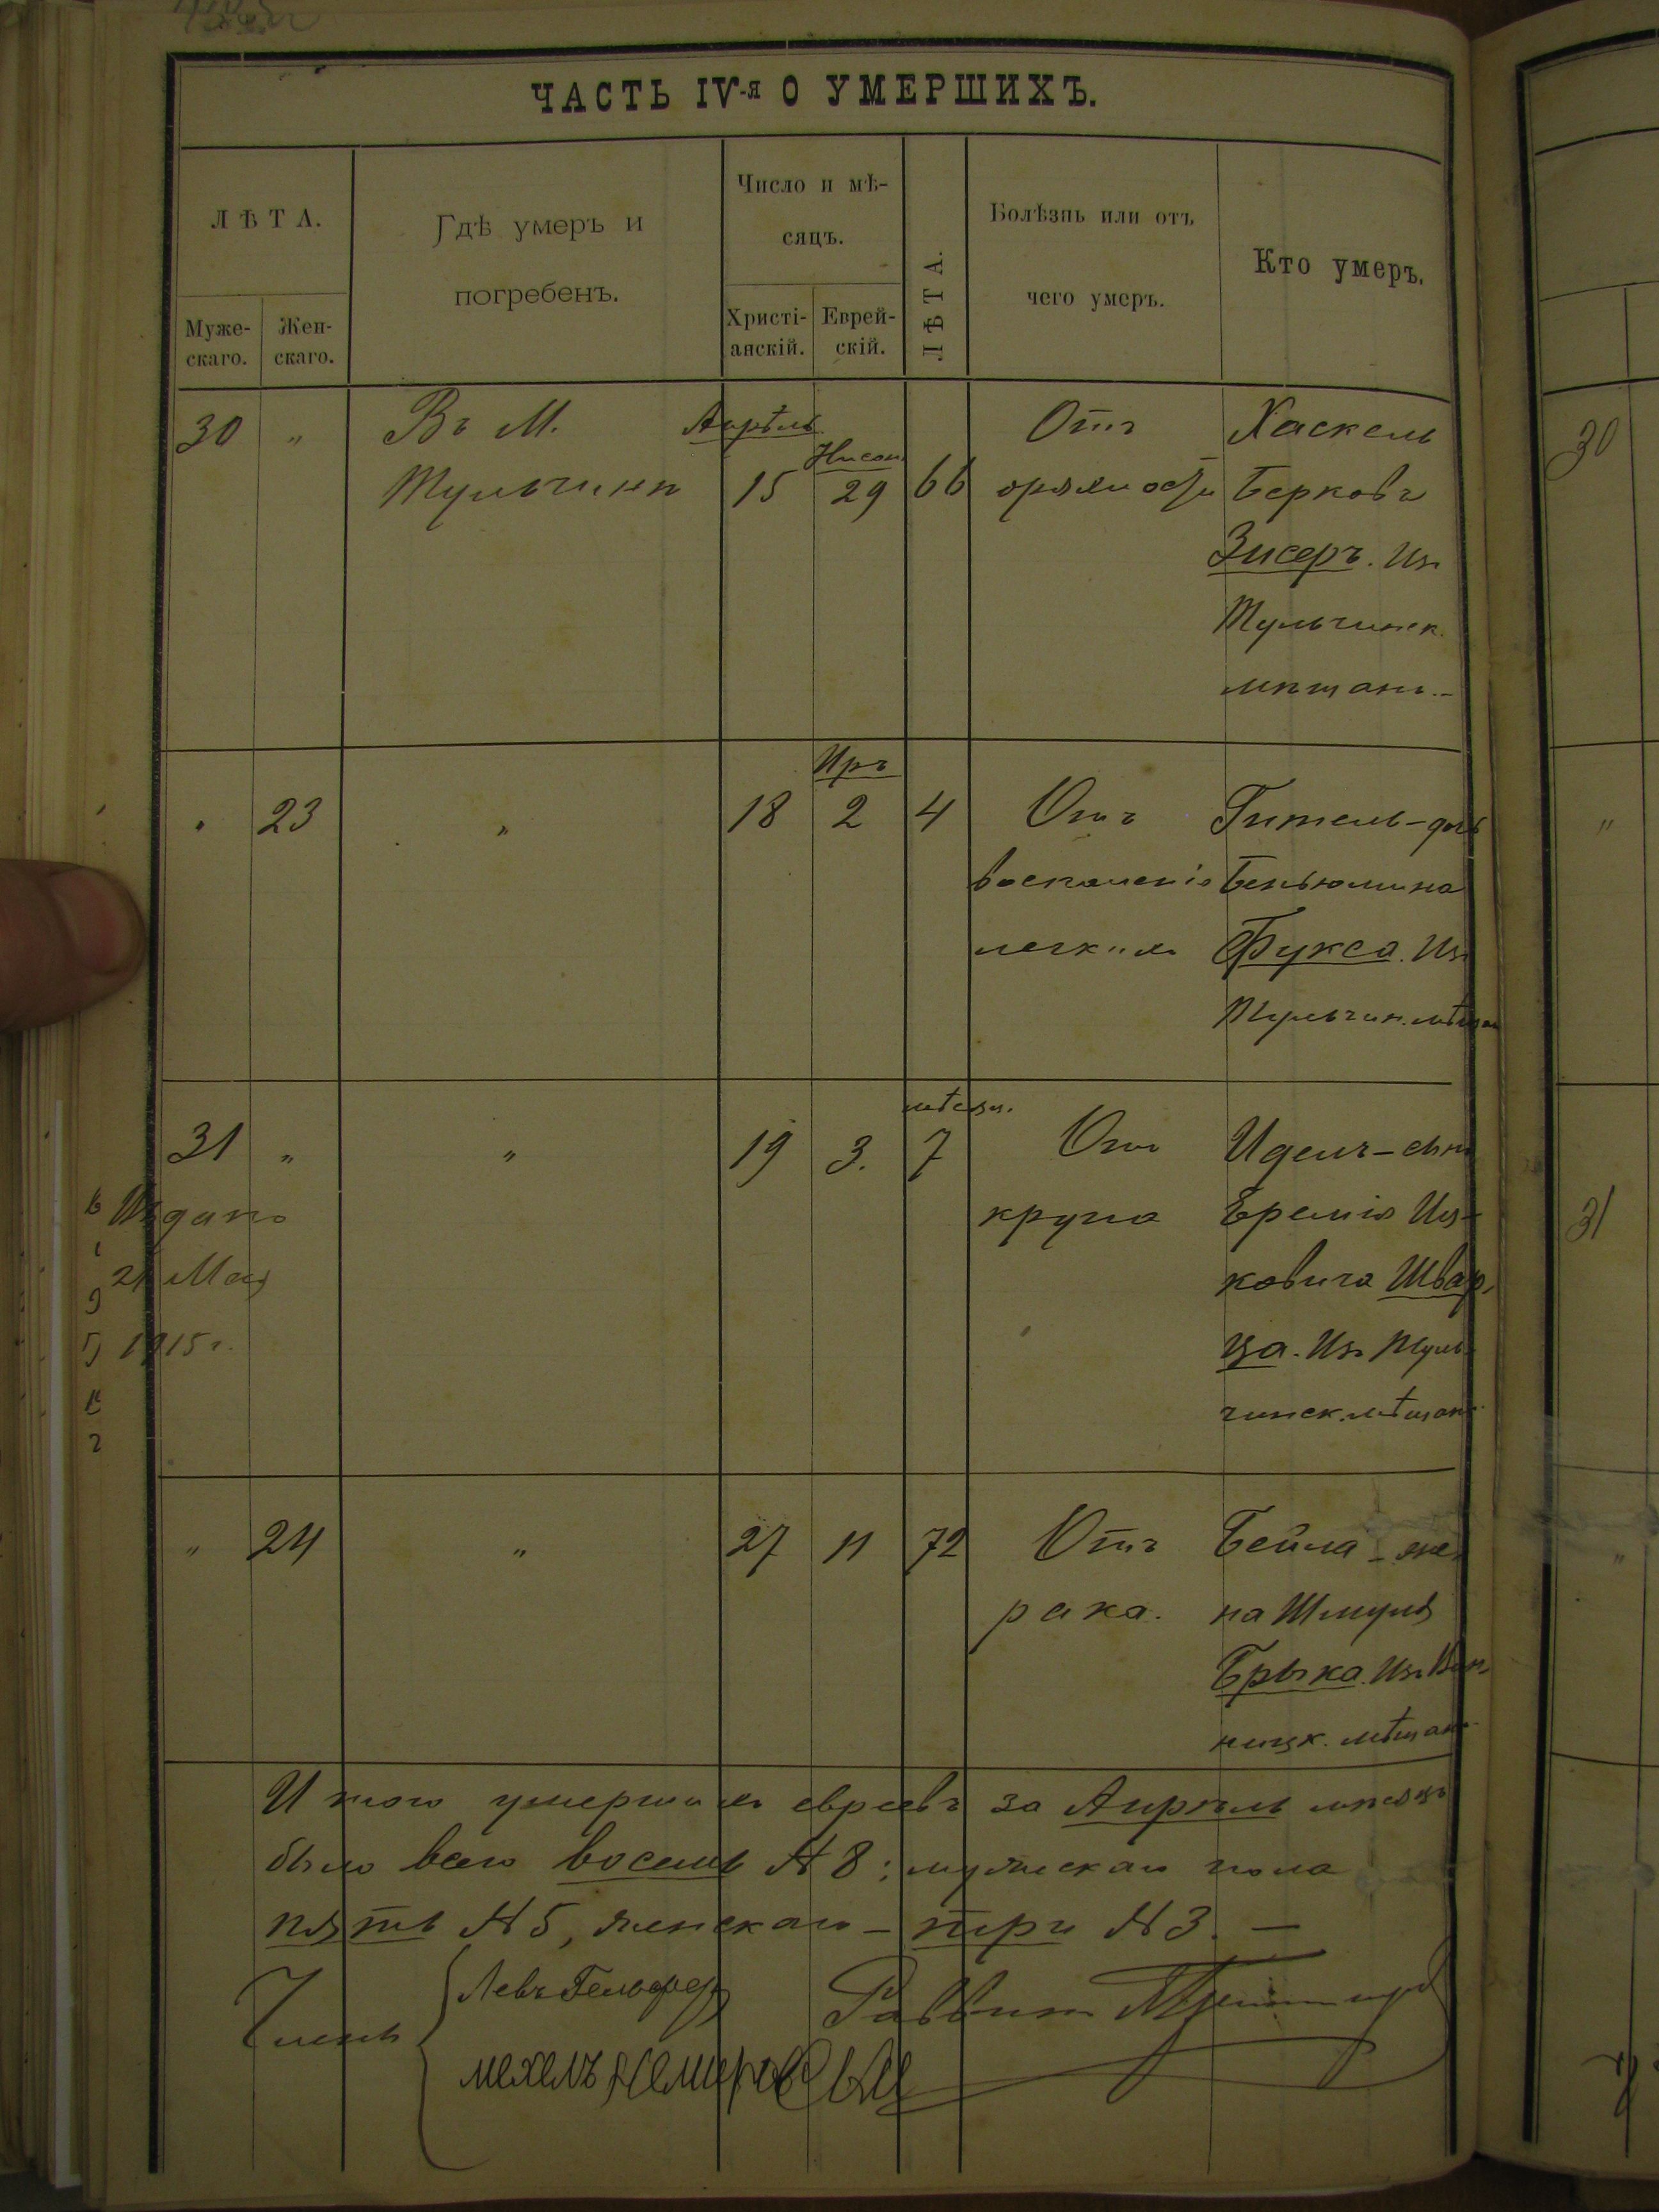 ЧАСТЬ IV-я О УМЕРШИХЪ.
ЛѢТА.
Муже-
скаго.
Жен-
скаго.
Гдѣ умеръ и
погребенъ.
Число и мѣ-
сяцъ.
Христі-
анскій.
Еврей-
скій.
ЛѢТА.
Болѣзнь или отъ
чего умеръ.
Кто умеръ.
30 „ Въ М. Апрѣль Отъ Хаскель
Нисон.
Тульчинѣ 15 29 66 Берковъ
Зисеръ. Изъ
Тульчинск.
мѣщанъ.-
Иръ
„ 23 „ 18 2 4 Отъ Гитель-дочь
воспаленія Беньюмина
легкихъ Фукса. Изъ
Тульчин. мѣщан
мѣсяц.
31 „ „ 19 3. 7 Отъ Идель-сынъ
крупа Еремія Иц-
ковича Швар-
ца. Изъ Туль-
чинск. мѣщан.
Выдано
21 Мая
1915 г.
„ 24 „ 27 11 72 Отъ Бейла - же-
рака. на Шмуля
Брыка. Изъ Вин-
ницк. мѣщан.
Итого умершихъ евреевъ за Апрѣль мѣсяцъ
было всего восемь № 8; мужскаго пола
пять № 5, женскаго - три № 3. -
Члены Левъ Раввинъ
мехелъ
30
„
31
„